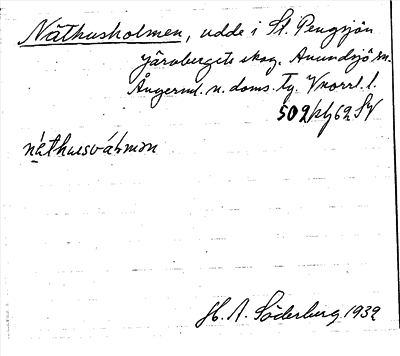 Näthusholmen, udde i St. Pengsjön
Järnbergets skog. Anundsjö sn.
Ångerml. n. doms. Tg. Vnorrl. l.
502 62 SV
näthusvåhmən
H. A. Söderberg 1932